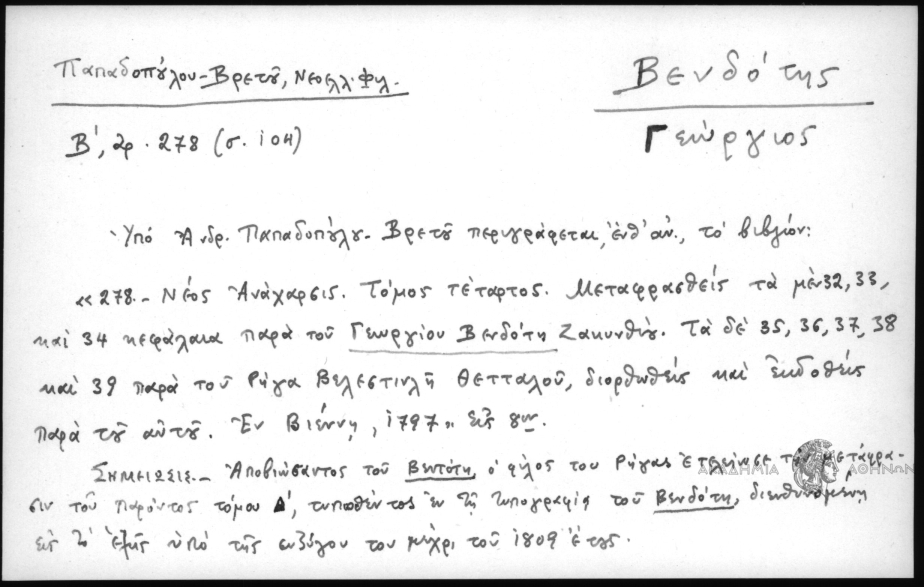 Παπαδοπούλου-Βρετοῦ, Νεοελλ. Φιλ.
Β', ἀρ. 278 (σ. 104)
Βενδότης
Γεώργιος
Ὑπό Ἀνδρ. Παπαδοπούλου-Βρετοῦ περιγράφεται, ἐνθ' ἀν., τό βιβλίον:
«278.- Νέος Ἀνάχαρσις. Τόμος τέταρτος. Μεταφρασθείς τά μέν 32, 33,
καί 34 κεφάλαια παρά τοῦ Γεωργίου Βενδότη Ζακυνθίου. Τά δέ 35, 36, 37, 38
καί 39 παρά τοῦ Ρήγα Βελεστινλῆ Θετταλοῦ, διορθωθείς καί ἐκδοθείς
παρά τοῦ αὐτοῦ. Ἐν Βιέννῃ, 1797» εἰς 8ον.
Σημείωσις.- Ἀποβιώσαντος τοῦ Βεντότη, ὁ φίλος του Ρήγας ἐτελείωσε τήν μετάφρα-
σιν τοῦ παρόντος τόμου Δ', τυπωθέντος ἐν τῇ τυπογραφίᾳ τοῦ Βενδότη, διευθυνομένῃ
εἰς τό ἑξῆς ὑπό τῆς συζύγου του μέχρι τοῦ 1809 ἔτους.
ΑΚΑΔΗΜΙΑ ΑΘΗΝΩΝ